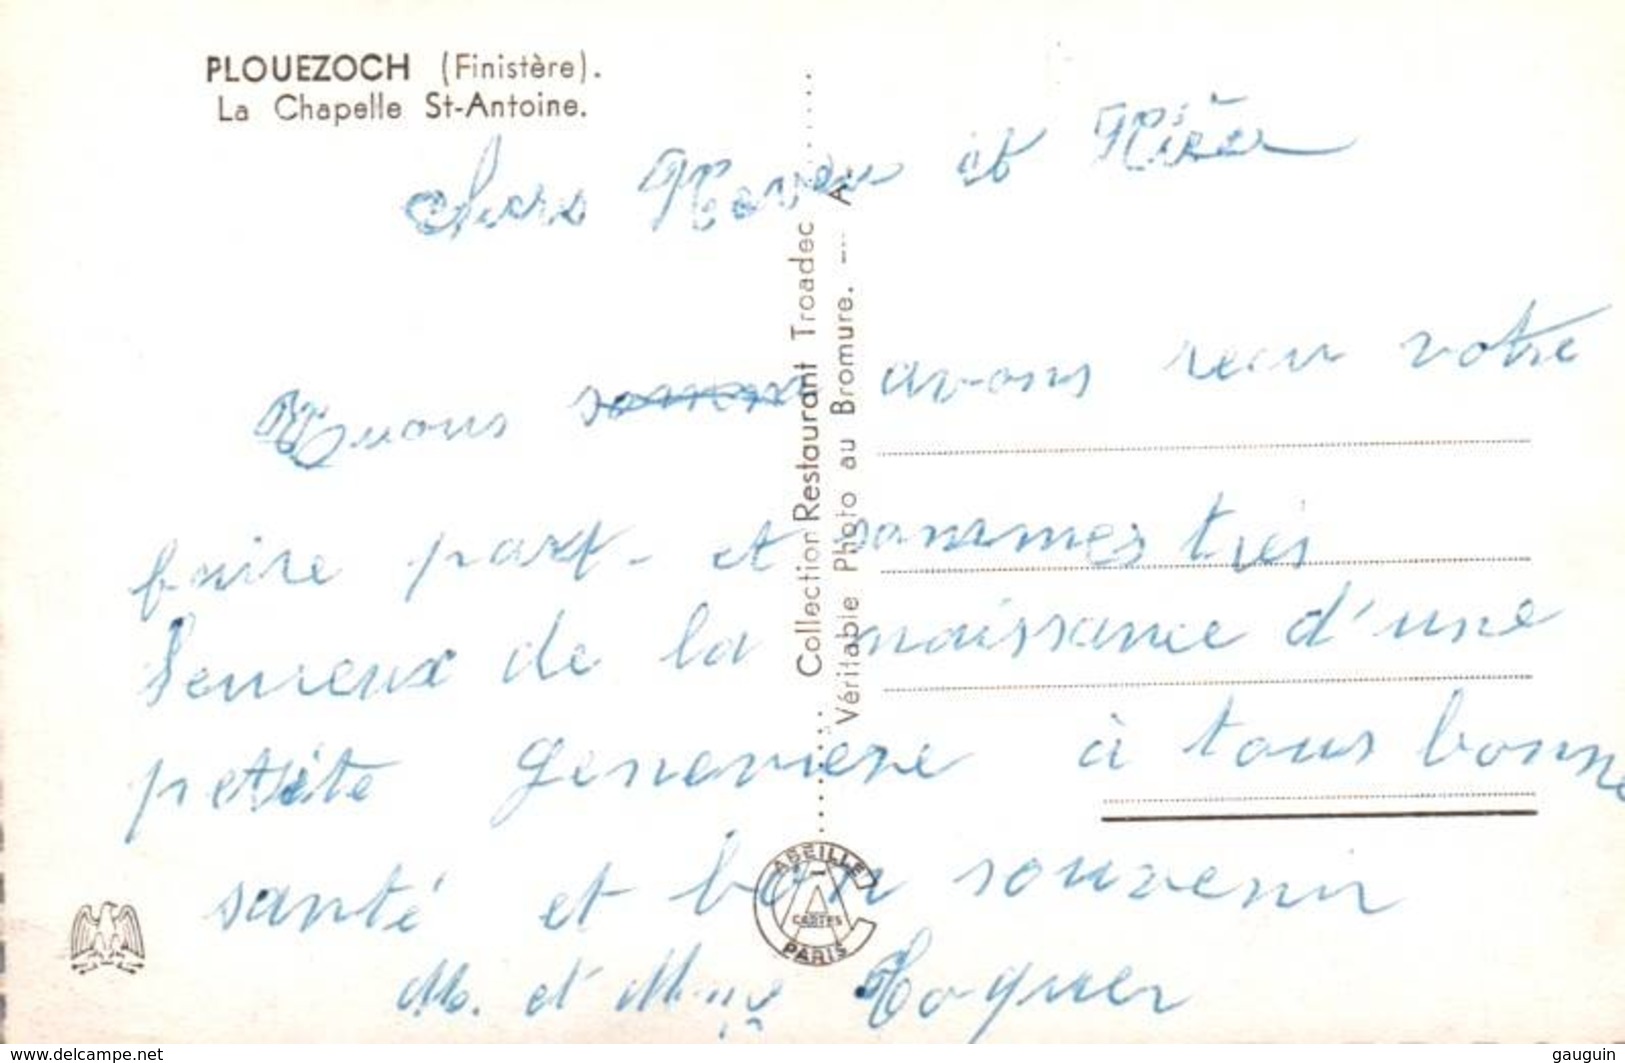 PLOUEZOCH (Finistère).
La Chapelle St-Antoine.
Chers Neveu et Nièce
Nous avons recu votre
faire part - et sommes très
heureux de la naissance d'une
petite Genevieve à tous bonne
santé et bon souvenir
M. et Mme
Collection Restaurant Troadec
Véritable Photo au Bromure. — A
ABEILLE
CARTES
PARIS
www.delcampe.net
gauguin